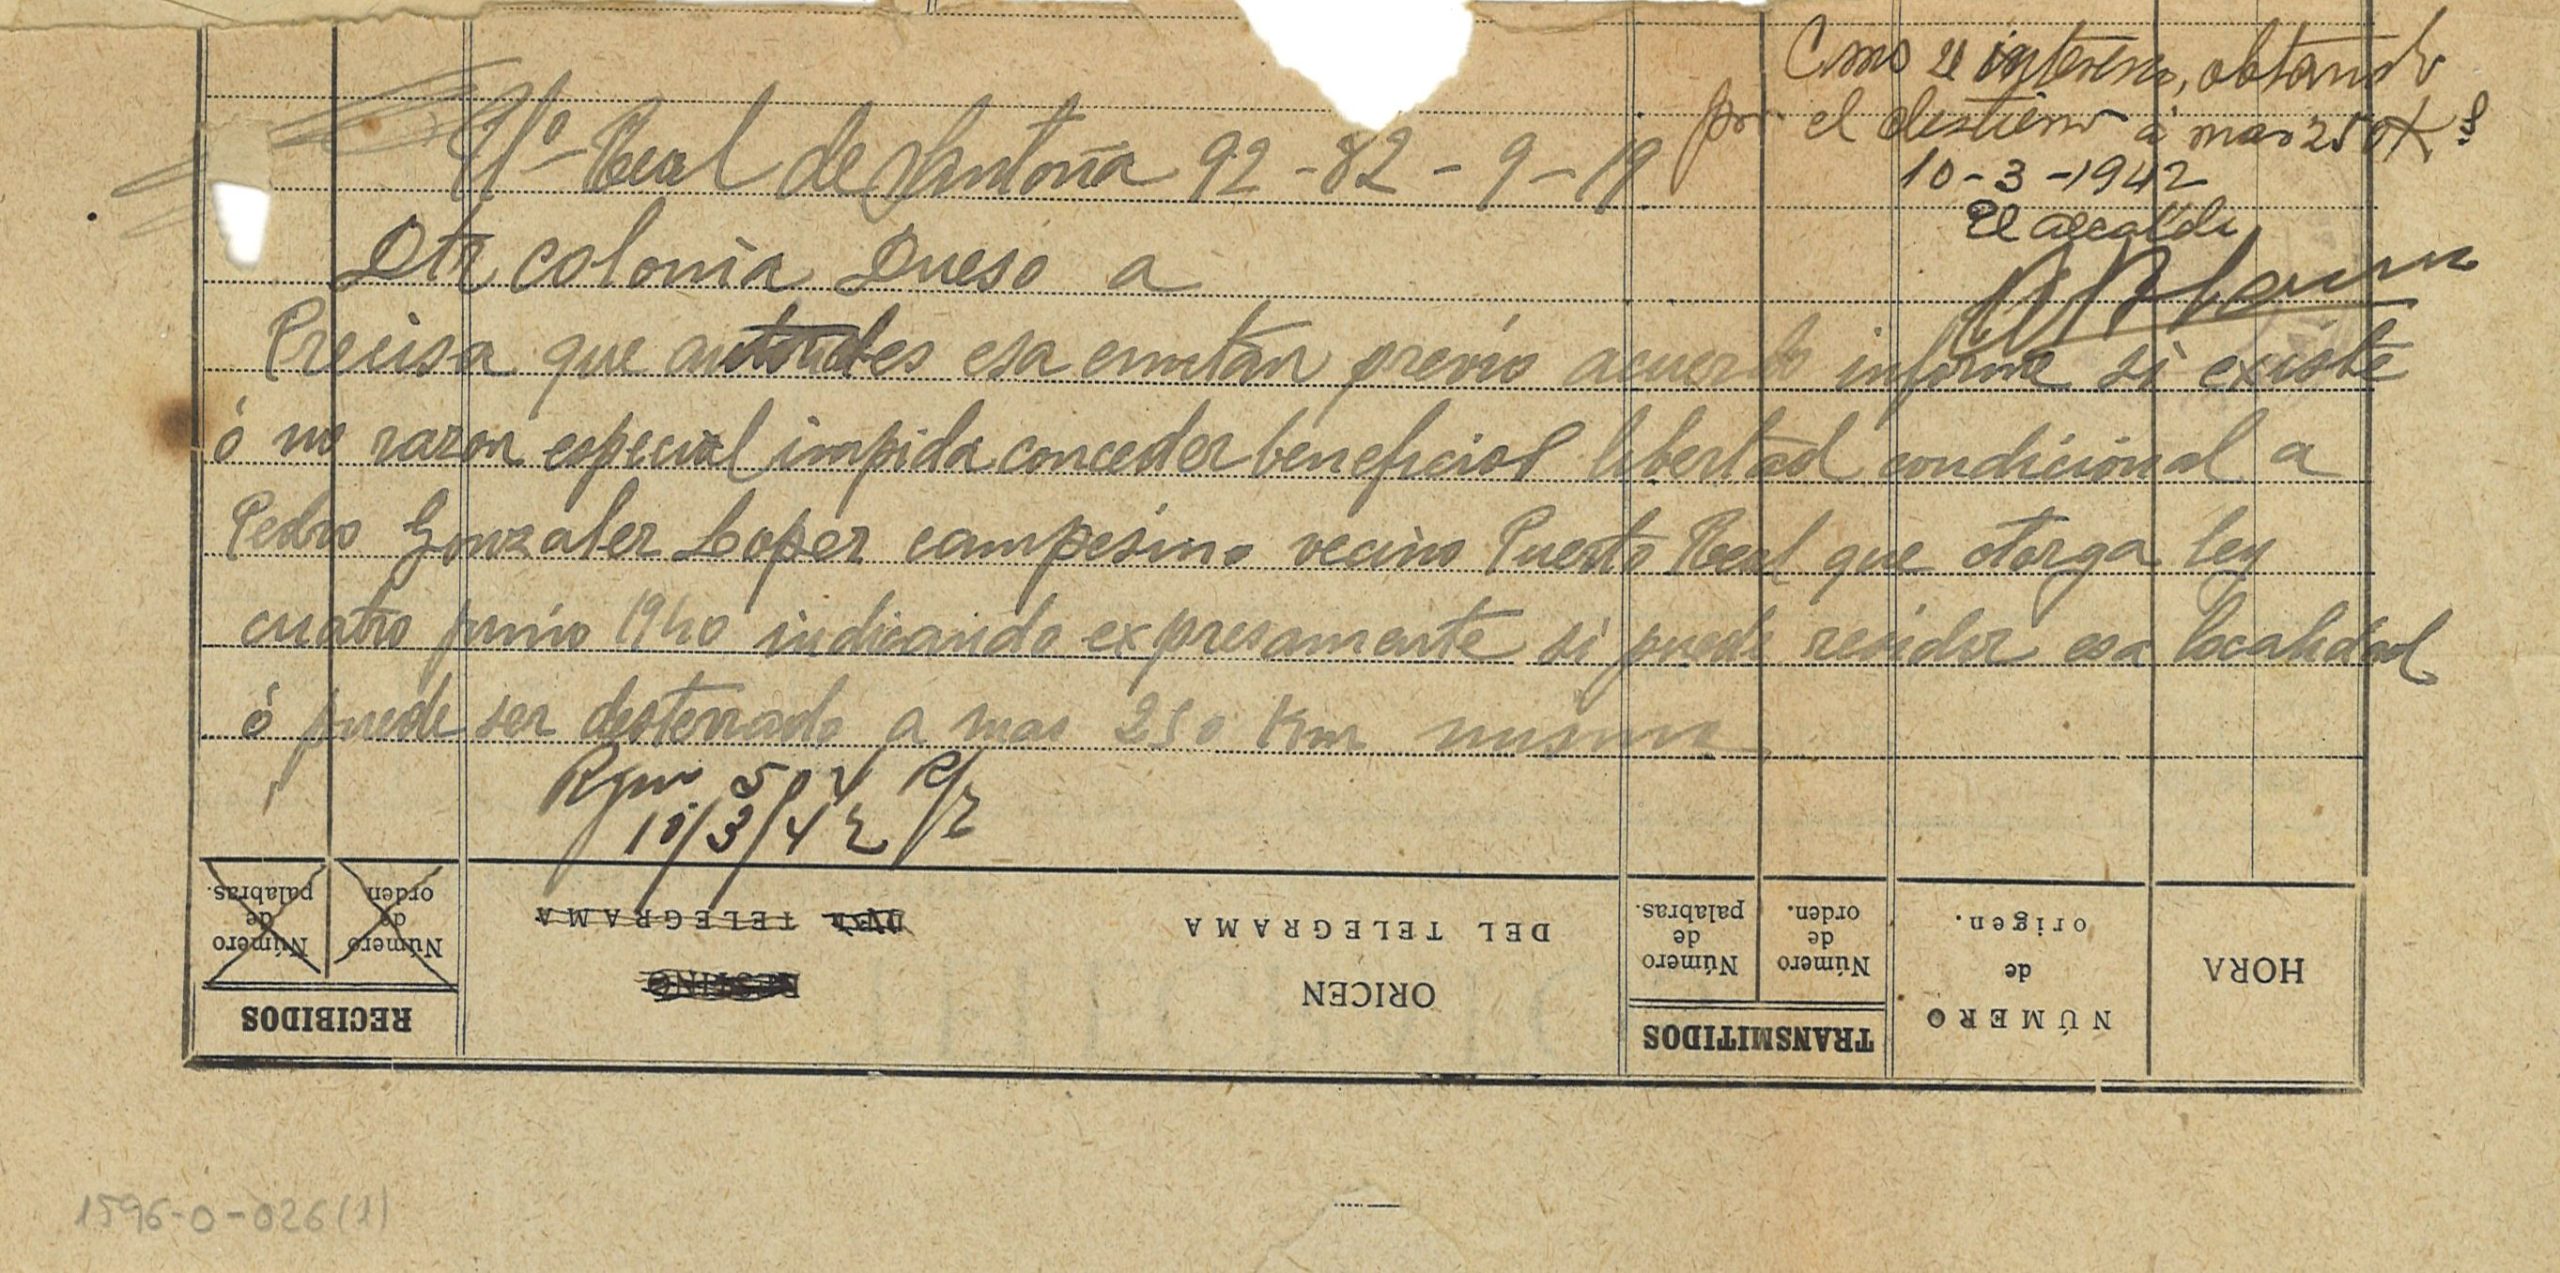 Como se interesa, obtando
por el destierro a mas 250 Ks
10-3-1942
El alcalde
Pto Real de Santoña 92-82-9-19
Dtr colonia Dueso a
Precisa que autoridades esa emitan previo acuerdo informe si existe
ó no razon especial impida conceder beneficios libertad condicional a
Pedro Gonzalez Lopez campesino vecino Puerto Real que otorga ley
cuatro junio 1940 indicando expresamente si puede residir esa localidad
ó puede ser desterrado a mas 250 Km misma
504
10/3/42
RECIBIDOS
Número de palabras.
Número de orden
DESTINO
DEL TELEGRAMA
ORIGEN
DEL TELEGRAMA
TRANSMITIDOS
Número de palabras.
Número de orden.
NÚMERO
de
origen.
HORA
1596-0-026(1)